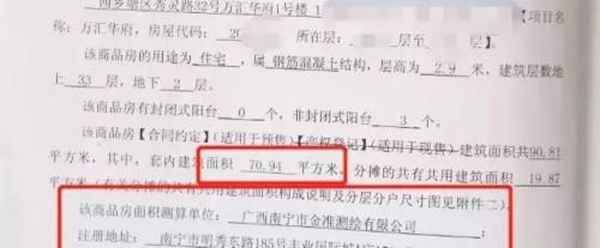 西乡塘区秀灵路32号万汇华府1号楼1 【项目名
称：万汇华府，房屋代码：20 所在层： 层至 】
该商品房的用途为 住宅 ，属 钢筋混凝土结构，层高为 2.9 米，建筑层数地
上 33 层，地下 2 层。
该商品房有封闭式阳台 0 个，非封闭式阳台 3 个。
该商品房【合同约定】(适用于预售)【产权登记】(适用于现售)建筑面积共90.81
平方米，其中，套内建筑面积 70.94 平方米，分摊的共有共用建筑面积 19.87
平方米（有关分摊的共有共用建筑面积构成说明及分层分户尺寸图见附件二）。
该商品房面积测算单位：广西南宁市金准测绘有限公司 ；
注册地址：南宁市明秀东路185号丰业国际城